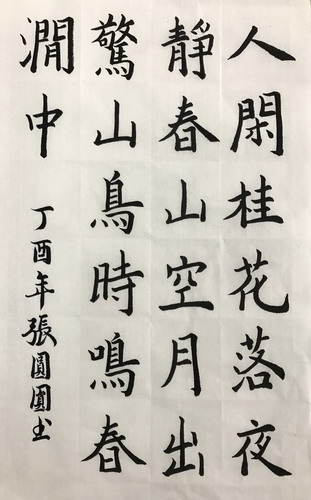 人閑桂花落夜
靜春山空月出
驚山鳥時鳴春
澗中
丁酉年張圓圓书